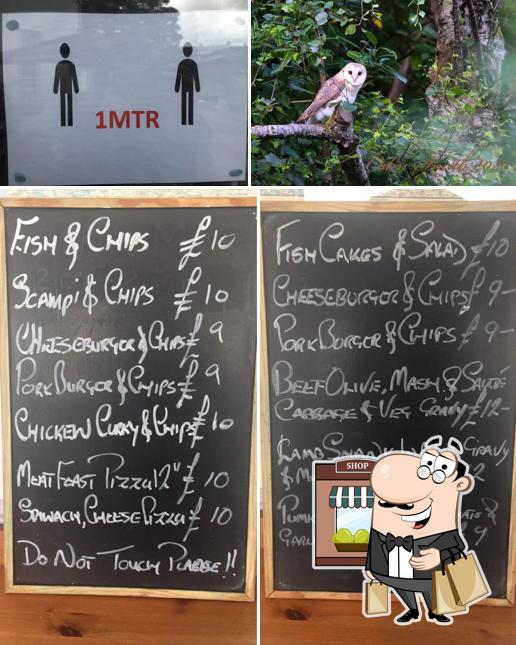 1MTR
FISH & CHIPS £10
SCAMPI & CHIPS £10
CHEESEBURGER & CHIPS £9
PORK BURGER & CHIPS £9
CHICKEN CURRY & CHIPS £10
MEAT FEAST PIZZA 12" £10
SPINACH, CHEESE PIZZA £10
DO NOT TOUCH PLEASE!!
FISH CAKES & SALAD £10
CHEESEBURGER & CHIPS £9-
PORK BURGER & CHIPS £9-
BEEF OLIVE, MASH & SAUTÉE
CABBAGE & VEG GRAVY £12-
LAMB GRAVY
& M
SHOP
9